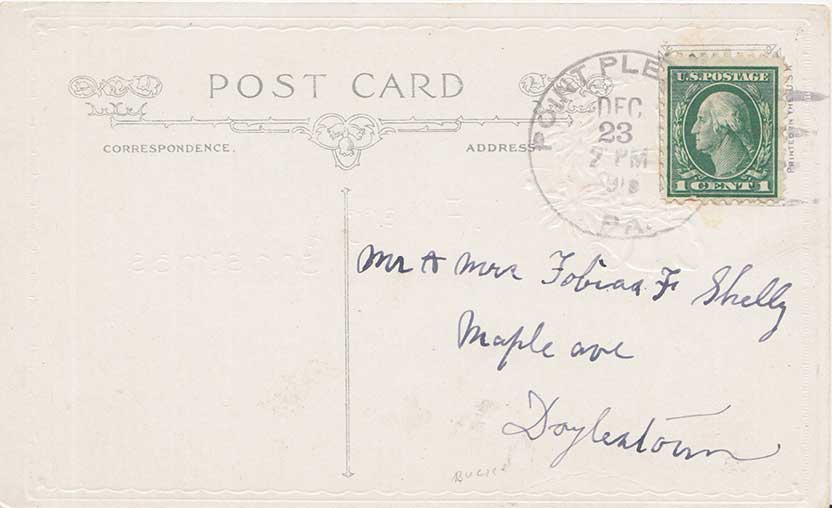 POST CARD
CORRESPONDENCE.
ADDRESS
POINT PLE
DEC
23
PM
PA.
U.S. POSTAGE
1 CENT 1
PRINTED IN THE U.S.A
Mr & Mrs Tobias F Shelly
Maple ave
Doylestown
BUCKS